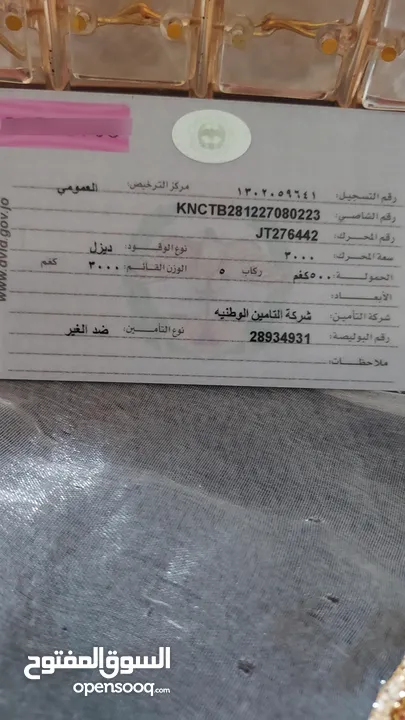 رقم التسجيل: ١٣٠٢٠٥٩٦٤١ مركز الترخيص: العمومي
رقم الشاصي: KNCTB281227080223
رقم المحرك: JT276442
سعة المحرك: ٣٠٠٠ نوع الوقود: ديزل
الحمولة: ٥٠٠كغم ركاب ٥ الوزن القائم: ٣٠٠٠ كغم
الأبعاد:
شركة التأمين: شركة التامين الوطنيه
رقم البوليصة: 28934931 نوع التأمين: ضد الغير
ملاحظات:
www.dvld.gov.jo
السوق المفتوح
opensooq.com